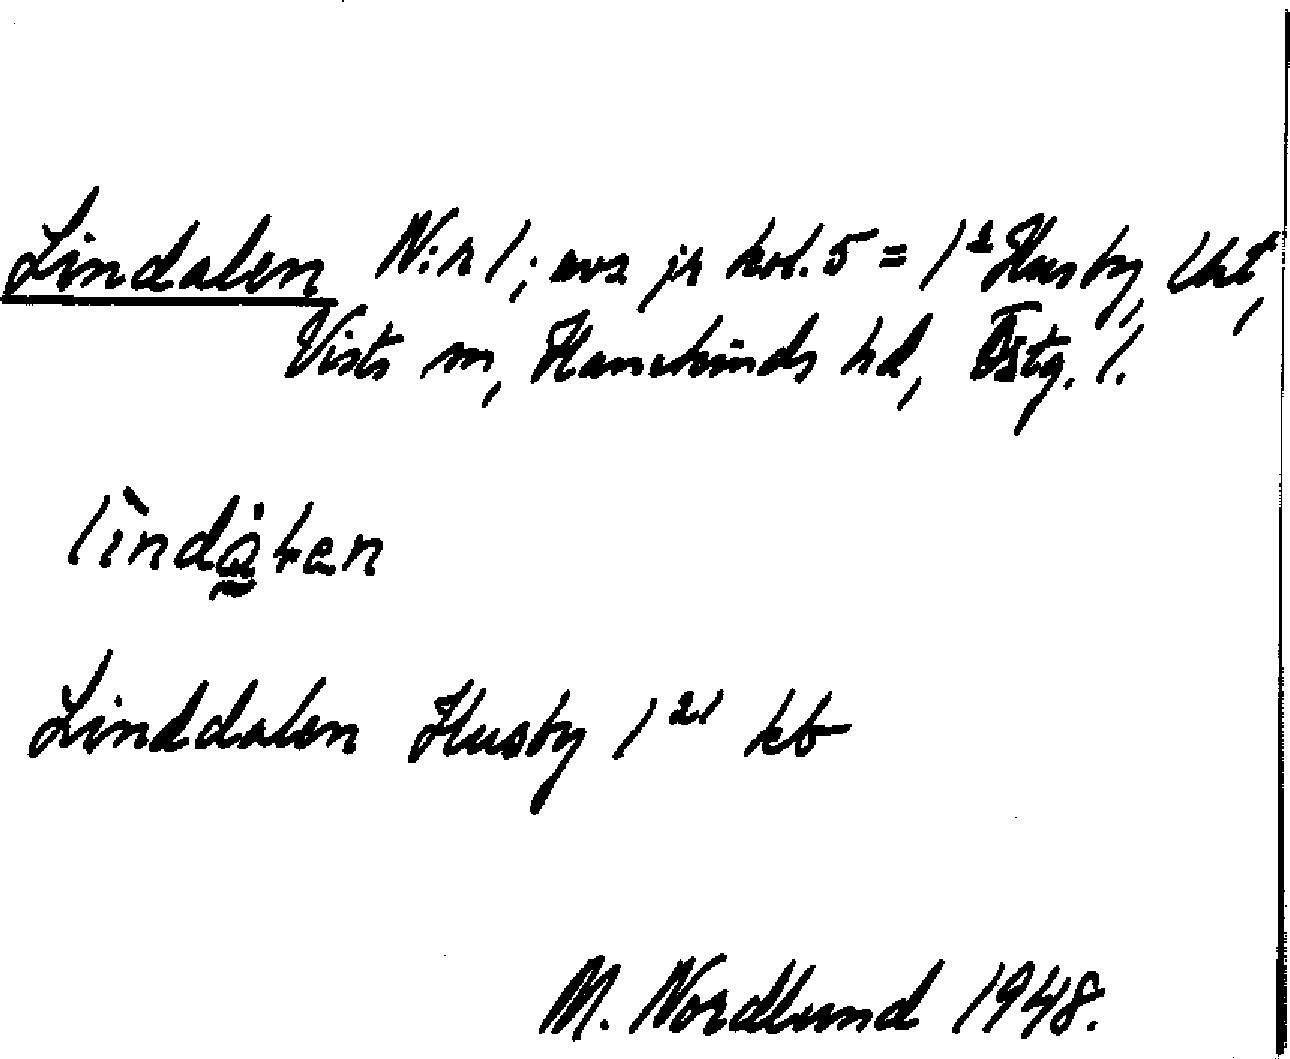 Lindalen N:r 1; avs jr kol. 5 = 1² Husby, Ukt,
Vists sn, Hanekinds hd, Östg. l.
lìndȧ̱ɫen
Linddalen Husby 1²¹ kb
M. Nordlund 1948.